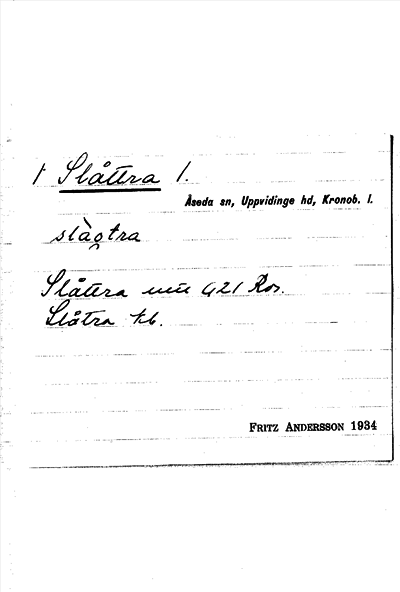 t Slåttra l.
Åseda sn, Uppvidinge hd, Kronob. l.
slàǫtra
Slåttra 421 Ros.
Slåtra kb.
FRITZ ANDERSSON 1934